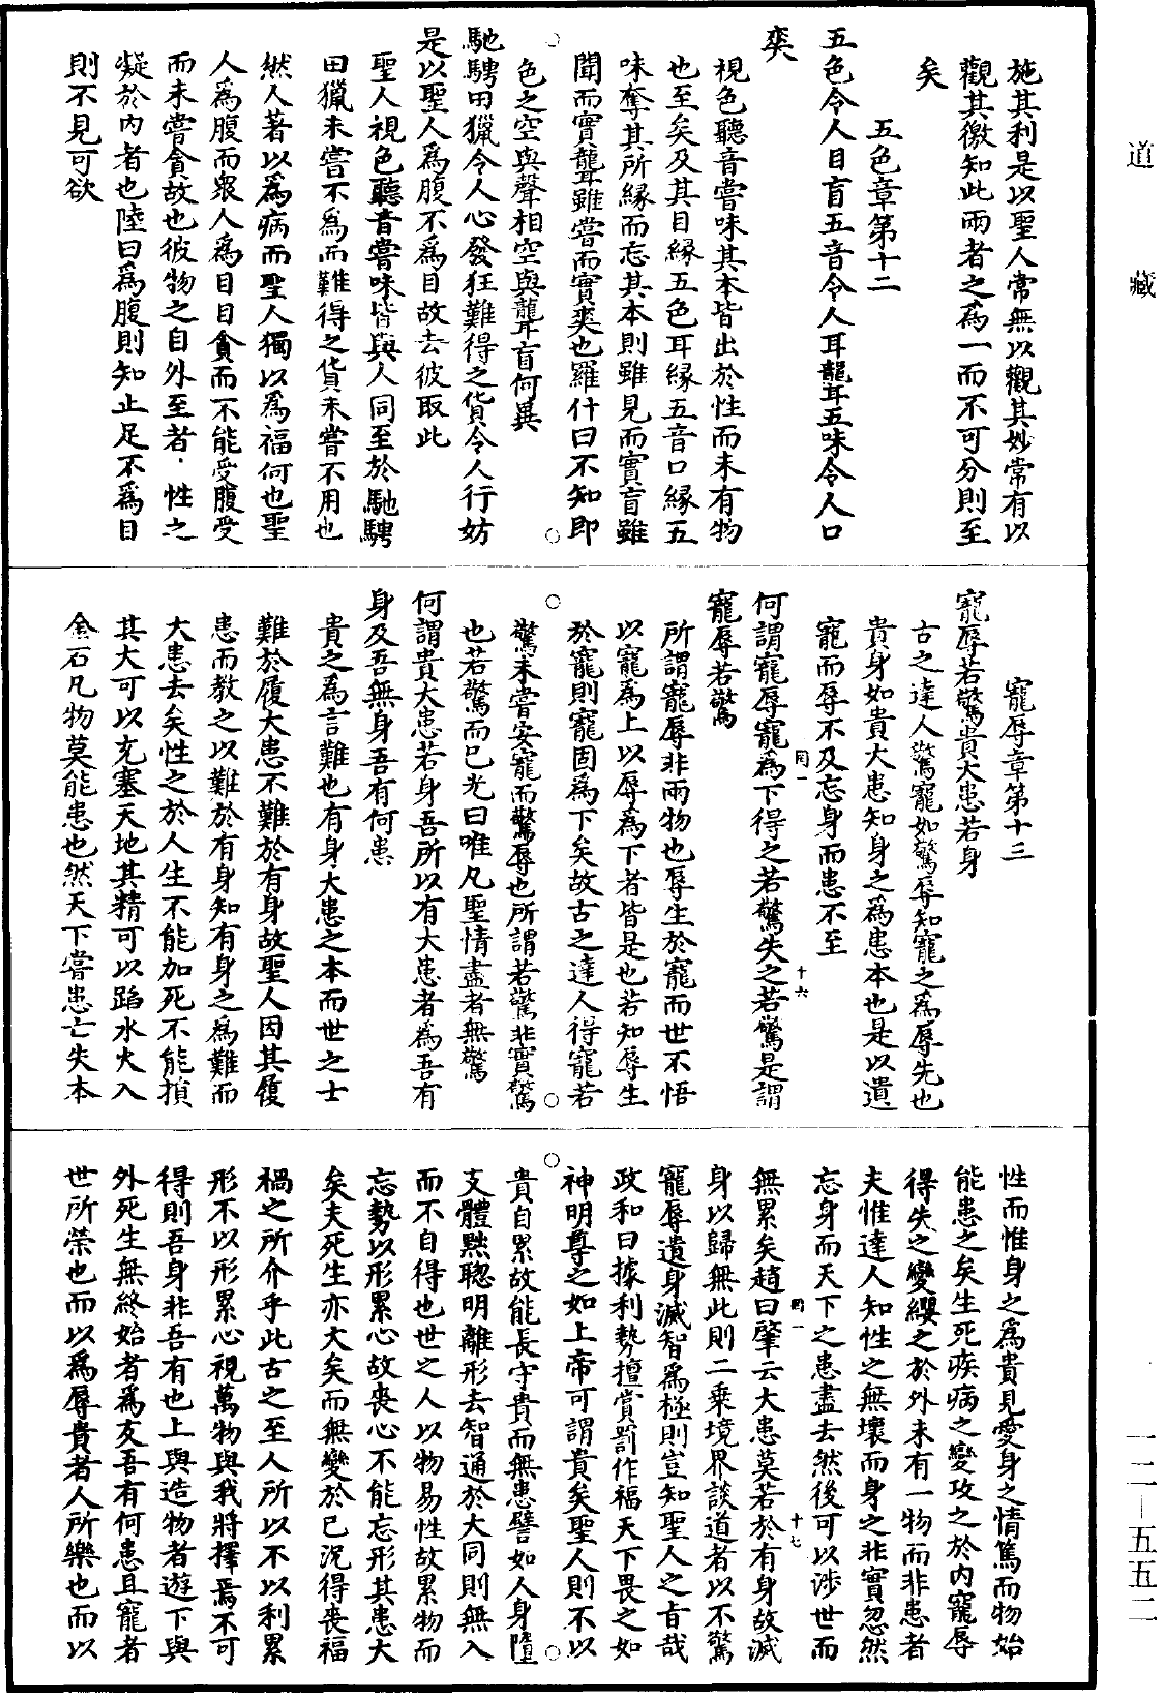 道藏
施其利是以聖人常無以觀其妙常有以
觀其徼知此兩者之為一而不可分則至
矣
五色章第十二
五色令人目盲五音令人耳聾五味令人口
爽
視色聽音嘗味其本皆出於性而未有物
也至矣及其目緣五色耳緣五音口緣五
味奪其所緣而忘其本則雖見而實盲雖
聞而實聾雖嘗而實爽也羅什曰不知即
色之空與聲相空與聾盲何異
馳騁田獵令人心發狂難得之貨令人行妨
是以聖人為腹不為目故去彼取此
聖人視色聽音嘗味皆與人同至於馳騁
田獵未嘗不為而難得之貨未嘗不用也
然人著以為病而聖人獨以為福何也聖
人為腹而眾人為目目貪而不能受腹受
而未嘗貪故也彼物之自外至者性之
凝於內者也陸曰為腹則知止足不為目
則不見可欲
寵辱章第十三
寵辱若驚貴大患若身
古之達人驚寵如驚辱知寵之為辱先也
貴身如貴大患知身之為患本也是以遺
寵而辱不及忘身而患不至
何謂寵辱寵為下得之若驚失之若驚是謂
寵辱若驚
所謂寵辱非兩物也辱生於寵而世不悟
以寵為上以辱為下者皆是也若知辱生
於寵則寵固為下矣故古之達人得寵若
驚未嘗安寵而驚辱也所謂若驚非實驚
也若驚而已光曰唯凡聖情盡者無驚
何謂貴大患若身吾所以有大患者為吾有
身及吾無身吾有何患
貴之為言難也有身大患之本而世之士
難於履大患不難於有身故聖人因其履
患而教之以難於有身知有身之為難而
大患去矣性之於人生不能加死不能損
其大可以充塞天地其精可以蹈水火入
金石凡物莫能患也然天下嘗患亡失本
性而惟身之為貴見愛身之情篤而物始
能患之矣生死疾病之變攻之於內寵辱
得失之變纓之於外未有一物而非患者
夫惟達人知性之無壞而身之非實忽然
忘身而天下之患盡去然後可以涉世而
無累矣趙曰肇云大患莫若於有身故滅
身以歸無此則二乘境界談道者以不驚
寵辱遺身滅智為極則豈知聖人之旨哉
政和曰據利勢擅賞罰作福天下畏之如
神明尊之如上帝可謂貴矣聖人則不以
貴自累故能長守貴而無患譬如人身墮
支體黜聰明離形去智通於大同則無入
而不自得也世之人以物易性故累物而
忘勢以形累心故喪心不能忘形其患大
矣夫死生亦大矣而無變於已況得喪福
禍之所介乎此古之至人所以不以利累
形不以形累心視萬物與我將擇焉不可
得則吾身非吾有也上與造物者遊下與
外死生無終始者為友吾有何患且寵者
世所榮也而以為辱貴者人所樂也而以
十六
十七
一二—五五二